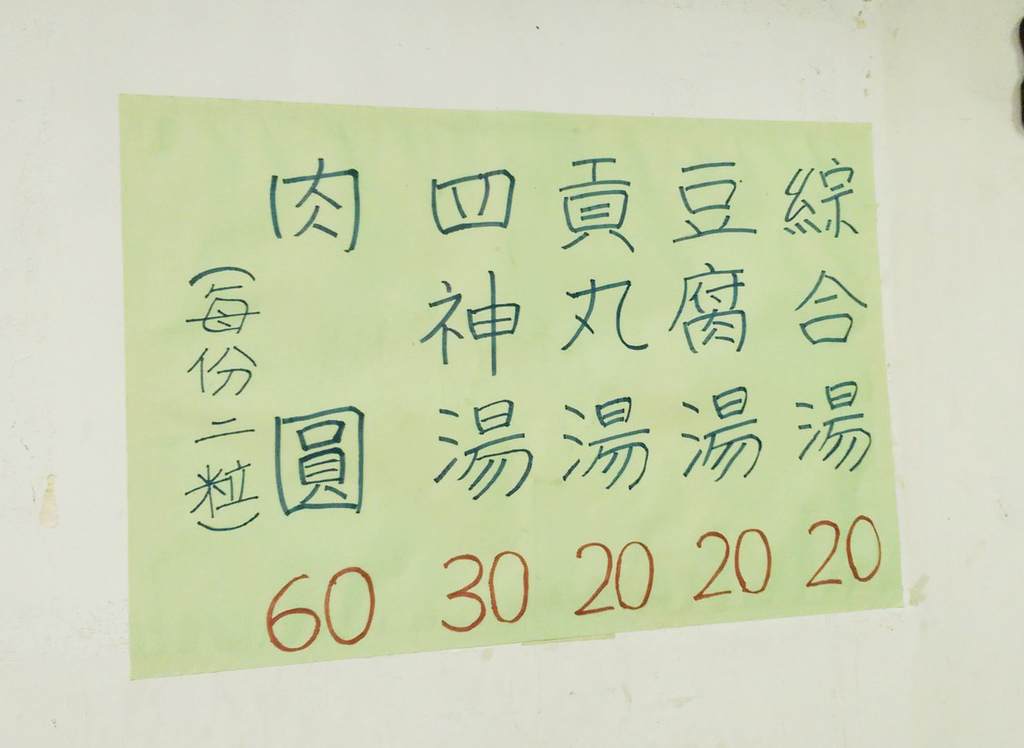 肉圓 60
(每份二粒)
四神湯 30
貢丸湯 20
豆腐湯 20
綜合湯 20